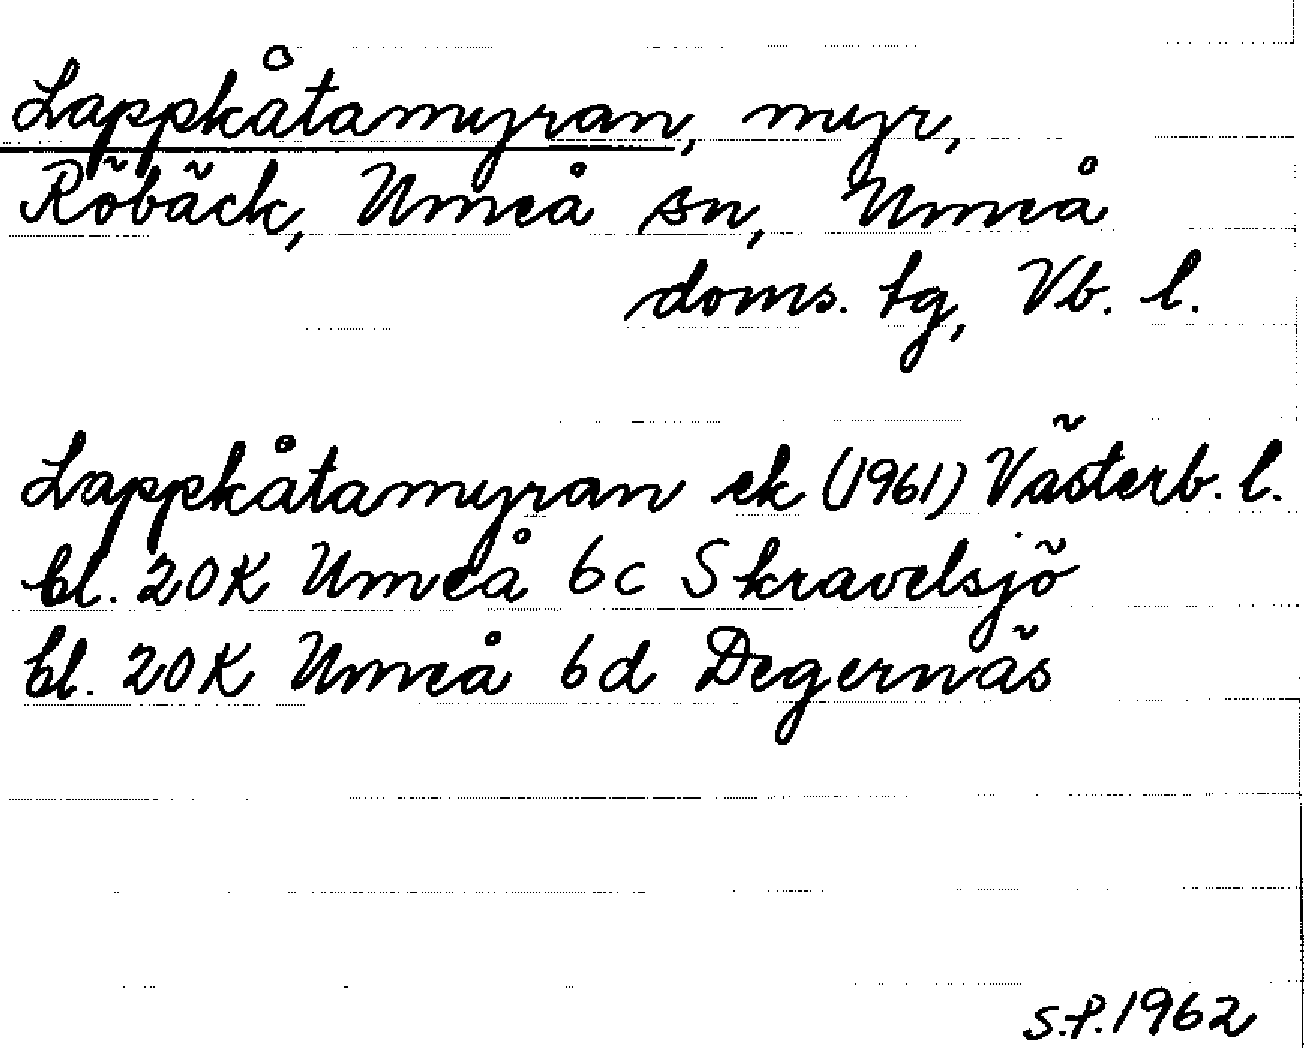 Lappkåtamyran, myr,
Röbäck, Umeå sn, Umeå
doms. tg, Vb. l.
Lappkåtamyran ek (1961) Västerb. l.
bl. 20K Umeå 6c Skravelsjö
bl. 20K Umeå 6d Degernäs
S.P. 1962